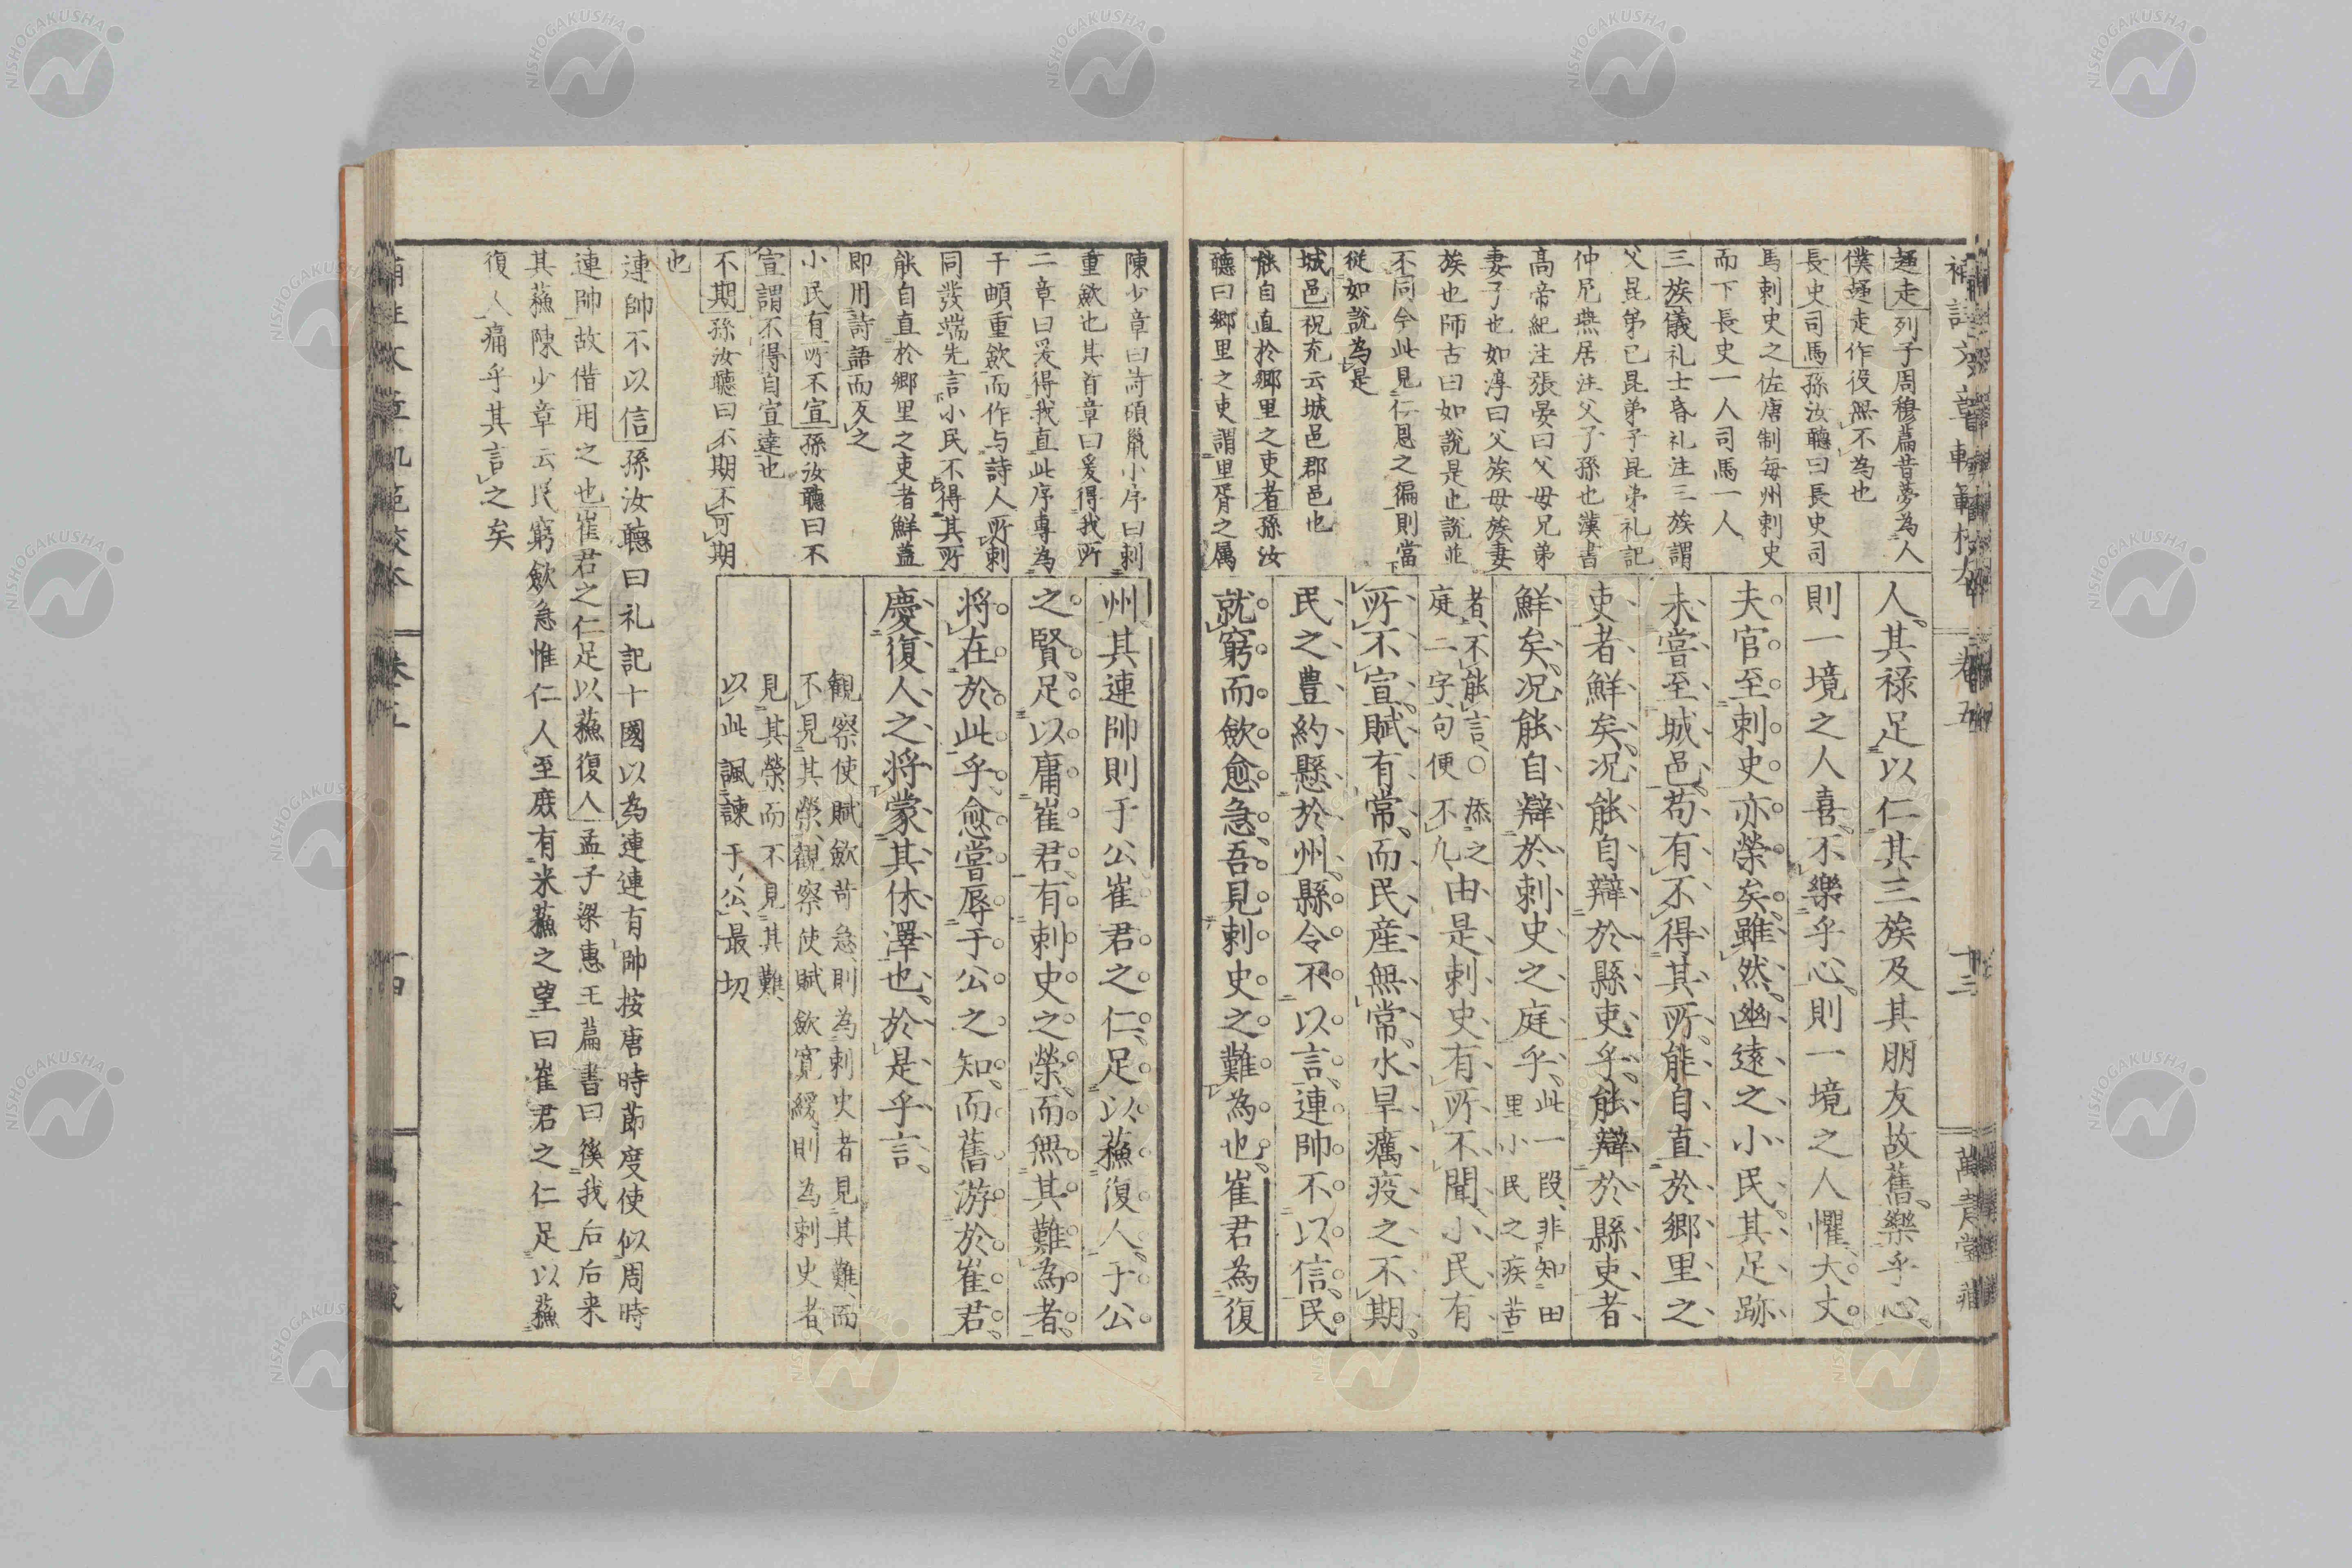 補註文章軌範校本 卷五 十三 萬青堂藏
趨走列子周穆篇昔夢為人
僕趨走作役無不為也
長史司馬孫汝聽曰長史司
馬刺史之佐唐制每州刺史
而下長史一人司馬一人
三族儀礼士昏礼注三族謂
父昆弟己昆弟子昆弟礼記
仲尼燕居注父子孫也漢書
高帝紀注張晏曰父母兄弟
妻子也如淳曰父族母族妻
族也師古曰如說是也說並
不同今此見仁恩之徧則當
從如說為是
城邑祝充云城邑郡邑也
能自直於郷里之吏者孫汝
聽曰郷里之吏謂里胥之属
人其禄足以仁其三族及其朋友故舊樂乎心
則一境之人喜不樂乎心則一境之人懼大丈
夫官至刺史亦榮矣雖然幽遠之小民其足跡
未嘗至城邑苟有不得其所能自直於郷里之
吏者鮮矣况能自辯於縣吏乎能辯於縣吏者
鮮矣况能自辯於刺史之庭乎此一段非知田
里小民之疾苦
者不能言○添之
庭二字句便不凡由是刺史有所不聞小民有
所不宣賦有常而民産無常水旱癘疫之不期
民之豊約懸於州縣令不以言連帥不以信民
就窮而斂愈急吾見刺史之難為也崔君為復
陳少章曰詩碩鼠小序曰刺
重斂也其首章曰爰得我所
二章曰爰得我直此序專為
于頔重斂而作与詩人所刺
同發端先言小民不得其所
能自直於郷里之吏者鮮蓋
即用詩語而反之
小民有所不宣孫汝聽曰不
宣謂不得自宣達也
不期孫汝聽曰不期不可期
也
州其連帥則于公崔君之仁足以蘓復人于公
之賢足以庸崔君有刺史之榮而無其難為者
将在於此乎愈嘗辱于公之知而舊游於崔君
慶復人之将蒙其休澤也於是乎言
観察使賦斂苛急則為刺史者見其難而
不見其榮観察使賦斂寛緩則為刺史者
見其榮而不見其難
以此諷諫于公最切
連帥不以信孫汝聽曰礼記十國以為連連有帥按唐時節度使似周時
連帥故借用之也崔君之仁足以蘓復人孟子梁惠王篇書曰徯我后后来
其蘓陳少章云民窮斂急惟仁人至庶有来蘓之望曰崔君之仁足以蘓
復人痛乎其言之矣
補註文章軌範校本 卷五 十四